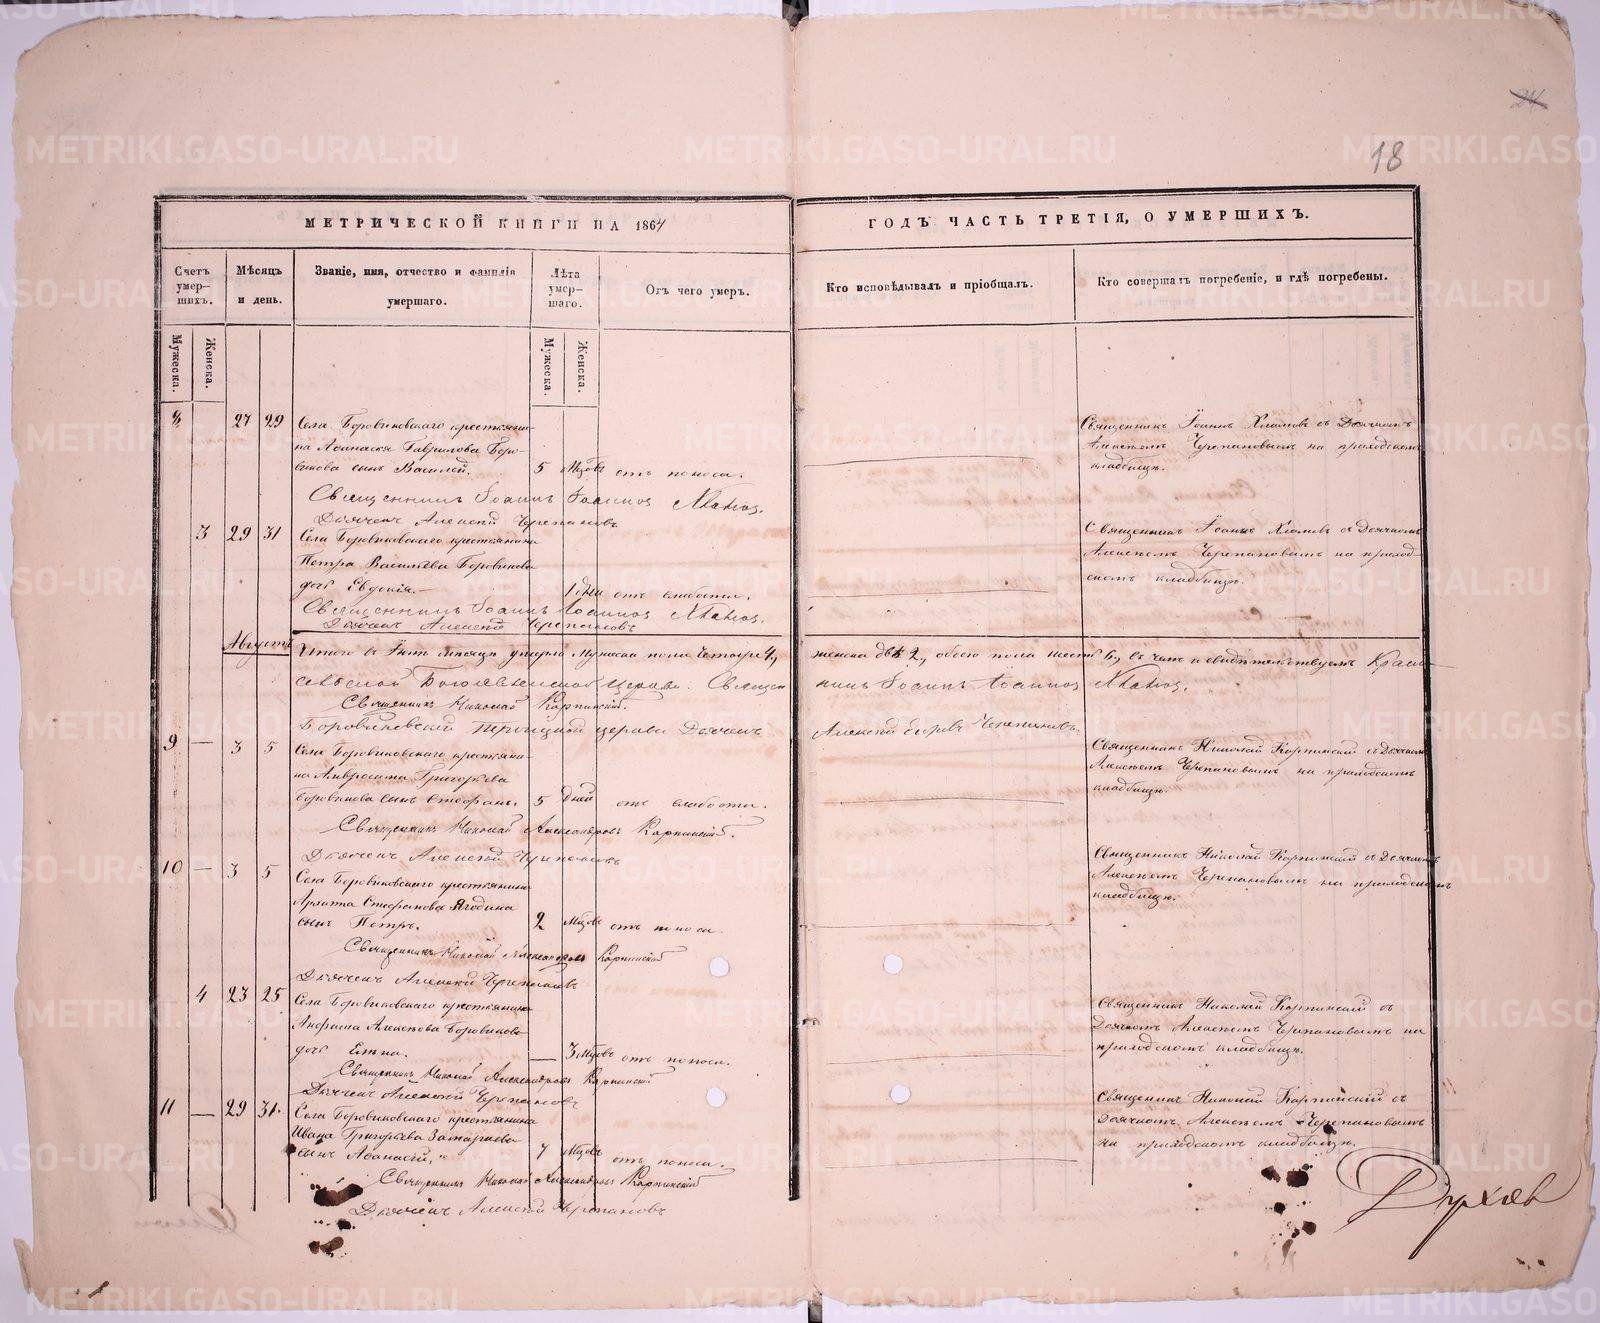 24
18
МЕТРИЧЕСКОЙ КНИГИ НА 1864
ГОДЪ ЧАСТЬ ТРЕТІЯ, О УМЕРШИХЪ.
Счетъ умер-шихъ.
Мѣсяцъ и день.
Званіе, имя, отчество и фамилія умершаго.
Лѣта умер-шаго.
Отъ чего умеръ.
Кто исповѣдывалъ и пріобщалъ.
Кто совершалъ погребеніе, и гдѣ погребены.
Мужеска.
Женска.
Мужеска.
Женска.
8 27 29 Села Боровиковскаго крестьяни-
на Аѳанасія Гаврилова Боро-
викова сынъ Василей. 5 Мцовъ отъ поноса.
Священникъ Іоаннъ Хламовъ съ Дьячкомъ
Алексѣемъ Черепановымъ на приходскомъ
кладбищѣ.
Священникъ Іоаннъ Іоанновъ Хламовъ.
Дьячекъ Алексѣй Черепановъ
3 29 31 Села Боровиковскаго крестьянина
Петра Васильева Боровикова
дочь Евдокія. 1 дня отъ слабости.
Священникъ Іоаннъ Хламовъ съ Дьячкомъ
Алексѣемъ Черепановымъ на приход-
скомъ кладбищѣ.
Священникъ Іоаннъ Іоанновъ Хламовъ.
Дьячекъ Алексѣй Черепановъ
Августъ
Итого въ Іюлѣ мѣсяцѣ умерло Мужеска пола четыре 4, женска двѣ 2, обоего пола шесть 6, въ чемъ и свидѣтельствуемъ
Богоявленской церкви Священникъ Іоаннъ Іоанновъ Хламовъ.
Священникъ Николай Карпинскій.
Боровиковской Троицкой церкви Дьячекъ Алексѣй Егоровъ Черепановъ.
9 — 3 5 Села Боровиковскаго крестьяни-
на Амвросима Григорьева
Боровикова сынъ Стефанъ. 5 Дней отъ слабости.
Священникъ Николай Карпинскій съ Дьячкомъ
Алексѣемъ Черепановымъ на приходскомъ
кладбищѣ.
Священникъ Николай Александровъ Карпинскій.
Дьячекъ Алексѣй Черепановъ
10 — 3 5 Села Боровиковскаго крестьянина
Стефанова Ягодина
сынъ Петръ. 2 Мцовъ отъ поноса.
Священникъ Николай Карпинскій съ Дьячкомъ
Алексѣемъ Черепановымъ на приходскомъ
кладбищѣ.
Священникъ Николай Александровъ Карпинскій
Дьячекъ Алексѣй Черепановъ
4 23 25 Села Боровиковскаго крестьянина
Алексѣева Боровикова
дочь Елена. — 3 Мцовъ отъ поноса.
Священникъ Николай Карпинскій съ
Дьячкомъ Алексѣемъ Черепановымъ на
приходскомъ кладбищѣ.
Священникъ Николай Александровъ Карпинскій
Дьячекъ Алексѣй Черепановъ
11 — 29 31 Села Боровиковскаго крестьянина
Ивана Григорьева
сынъ Аѳанасій. 7 Мцовъ отъ поноса.
Священникъ Николай Карпинскій съ
Дьячкомъ Алексѣемъ Черепановымъ
на приходскомъ кладбищѣ.
Священникъ Николай Александровъ Карпинскій
Дьячекъ Алексѣй Черепановъ
Духов
METRIKI.GASO-URAL.RU